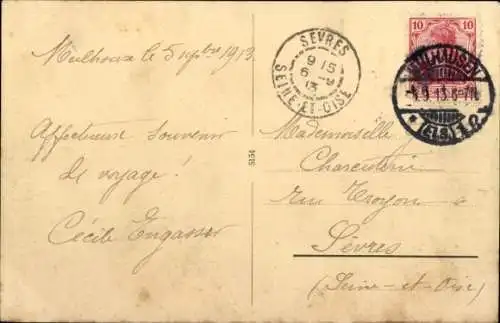 Mulhouse le 5 7bre 1913.
Affectueux souvenir
de voyage!
Cécile Engasser
SEVRES
9 15
6 -9
13
SEINE-ET-OISE
10 10
MÜLHAUSEN
5.9.13.6-7N.
*(ELS)1.e
5154
Mademoiselle
Charenterie
rue Troyon 2
Sèvres
(Seine-et-Oise)